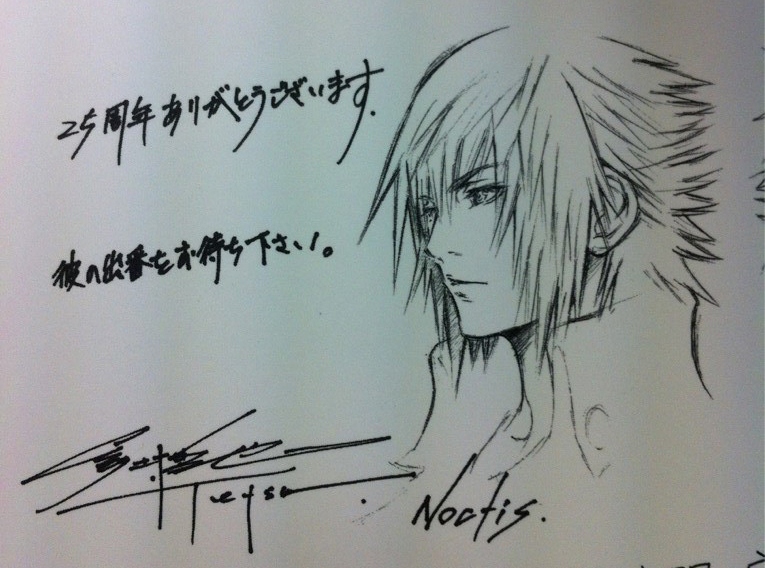 25周年ありがとうございます.
彼の出番をお待ち下さい。
Noctis.